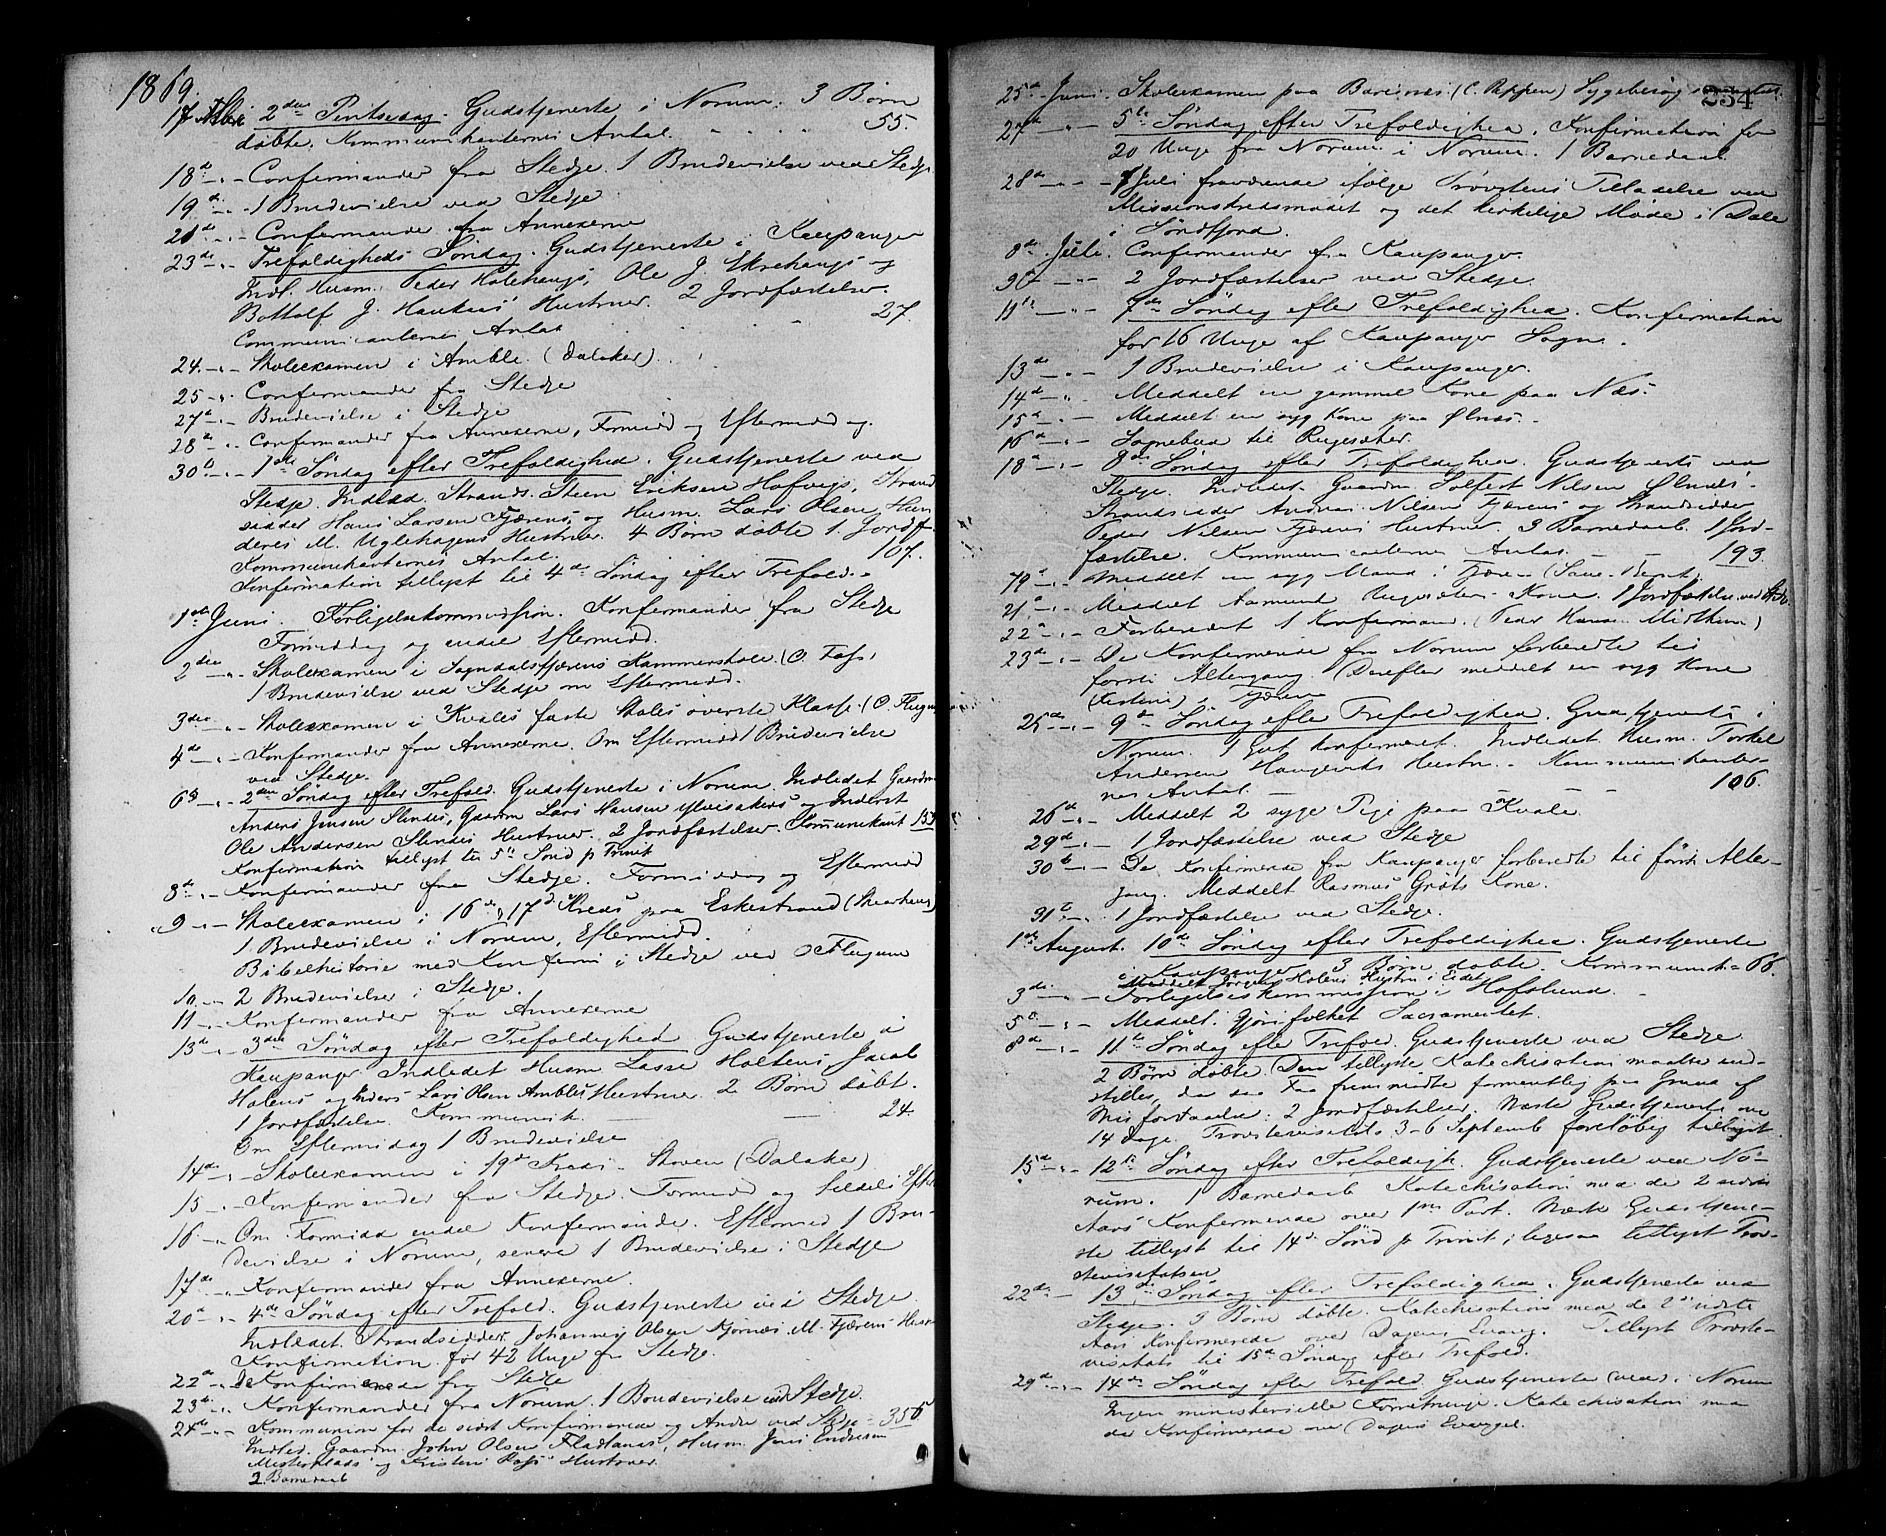 1869.
17 Mai 2den Pintsedag. Gudstjeneste i Norum. 3 Børn
døbte. Kommunikanternes Antal. 55.
18de -"- Confirmander fra Stedje. 1 Brudevielse ved Stedje
19de -"- 1 Brudevielse ved Stedje
-"- Confirmander fra Annexerne
23de -"- Trefoldigheds Søndag. Gudstjeneste i Kaupanger
Indl. Husm. Peder Holehaugs, Ole J. Ekrehaugs og
Bottolf J. Haukens Hustruer. 2 Jordfæstelser.
Communicanternes Antal 27.
24. -"- Skoleexamen i Amble. (Dalaker).
25 -"- Confirmander fra Stedje
27de -"- Brudevielse i Stedje
28de -"- Confirmander fra Annexerne, Formidd og Eftermiddag.
30te -"- 1ste Søndag efter Trefoldighed. Gudstjeneste ved
Stedje. Indled. Strands. Steen Eriksen Hofvigs, Strand
sidder Hans Larsen Fjærens, og Husm. Lars Olsen
M. Uglehagens Hustruer. 4 Børn døbte 1 Jordf.
Kommunikanternes Antal. 107.
Konfirmation tillyst til 4de Søndag efter Trefold.
1ste Juni. Forligelseskommission. Konfirmander fra Stedje
Formiddag og endel Eftermidd.
2den -"- Skoleexamen i Sogndalsfjærens Kammerskole. (O. Fass)
1 Brudevielse ved Stedje om Eftermidd.
3die -"- Skoleexamen i Kvåles faste Skoles øverste Klasse. (O. Flugum
4de -"- Konfirmander fra Annexerne. Om Eftermidd 1 Brudevielse
ved Stedje.
6te -"- 2den Søndag efter Trefold. Gudstjeneste i Norum. Indledet Gaardm
Anders Jensen Slindes, Gaardm Lars Hansen Ylvisakers og Inderst
Ole Andersen Slindes Hustruer. 2 Jordfæstelser. Communikant 133
Konfirmation tillyst til 5te Sønd p Trinit
8de -"- Konfirmander fra Stedje. Formiddag og Eftermidd
9 -"- Skoleexamen i 16de og 17de Kreds paa Eskestrand
1 Brudevielse i Norum, Eftermidd.
Bibelhistorie med Konfirm i Stedje ved O Flugum
10. -"- 2 Brudevielser i Stedje.
11 -"- Konfirmander fra Annexerne
13de -"- 3die Søndag efter Trefoldighed Gudstjeneste i
Kaupanger. Indledet Husm Lasse Holtens Jacob
Holens og Inders. Lars Olsen Ambles Hustruer. 2 Børn døbt.
1 Jordfæstelse. Kommunik. 24.
Om Eftermidag 1 Brudevielse
14de -"- Skoleexamen i 19de Kreds - (Dalaker)
15 -"- Konfirmander fra Stedje. Formidd og tildels Eft
16 -"- Om Formidd endel Konfirmander. Eftermidd 1 Bru-
devielse i Norum, senere 1 Brudevielse i Stedje
17de -"- Konfirmander fra Annexerne.
20de -"- 4de Søndag efter Trefold. Gudstjeneste ved Stedje.
Indledet. Strandsidder Johannes Olsen M. Fjærens Hustru
Konfirmation for 42 Unge fra Stedje.
22de -"- De Konfirmerede fra Stedje
23de -"- Konfirmander fra Norum. 1 Brudevielse ved Stedje.
24de -"- Kommunion for de sidst Konfirmerede og Andre ved Stedje - 356.
Indled. Gaardm. John Olsen Husm Jens Endresen
og Kristen Hustruer.
2 Barnedaab
234
25de Juni. Skoleexamen paa (C. Reppen) Sygebesøg
27de -"- 5te Søndag efter Trefoldighed. Konfirmation for
20 Unge fra Norum i Norum. 1 Barnedaab.
28de -"- 7 Juli fraværende ifølge Provstens Tilladelse ved
Missionskredsmødet og det kirkelige Møde i Dale
i Søndfjord.
8de Juli. Confirmander fra Kaupanger.
9de -"- 2 Jordfæstelser ved Stedje.
11te -"- 7de Søndag efter Trefoldighed. Konfirmation
for 16 Unge af Kaupanger Sogn.
13de -"- 1 Brudevielse i Kaupanger.
14de -"- Meddelt en gammel Kone paa Næs.
15de -"- Meddelt en syg Kone paa Ølnæs.
16de -"- Sognebud til Rugesæter.
18de -"- 8de Søndag efter Trefoldighed. Gudstjeneste ved
Stedje. Indledet Gaardm. Solfest Nilsen Ølnæs,
Strandsidder Andreas Nilsen Fjærens og Strandsidder
Peder Nilsen Fjærens Hustruer. 3 Barnedaab. 1 Jord-
fæstelse. Kommunicanternes Antal. 193.
19de -"- Meddelt en syg Mand i Fjæren
21de -"- Meddelt Aamund Rugesæters Kone. 1 Jordfæstelse ved Stedje.
22de -"- Forberedet 1 Konfirmand. (Peder Hansen Midthun)
23de -"- De Konfirmerede fra Norum forberedte til
første Altergang. Derefter meddelt en syg Kone
i Fjæren
25de -"- 9de Søndag efter Trefoldighed. Gudstjeneste i
Norum. 1 Gut konfirmeret. Indledet Husm. Torkel
Andersen Haugens Hustru. Kommunikanter-
nes Antal 106.
26de -"- Meddelt 2 syge Piger paa Kvåle.
29de -"- 1 Jordfæstelse ved Stedje
30te -"- De Konfirmerede fra Kaupanger forberedte til første Alter-
gang. Meddelt Rasmus Grøts Kone.
31te -"- 1 Jordfæstelse ved Stedje.
1ste August. 10de Søndag efter Trefoldighed. Gudstjeneste
i Kaupanger 3 Børn døbte. Kommunik. 66.
Meddelt Holens Hustru i Eidet
3die -"- Forligelseskommission i Hofslund.
5te -"- Meddelt Sacramentet.
8de -"- 11te Søndag efter Trefold. Gudstjeneste ved Stedje.
2 Børn døbte. Den tillyste Katechisation maatte ind-
stilles, da saa Faa fremmødte formentlig paa Grund af
Misforstaaelse. 2 Jordfæstelser. Næste Gudstjeneste om
14 Dage. Provstevisitats 3-6 Septemb foreløbig tillyst.
15de -"- 12te Søndag efter Trefoldigh. Gudstjeneste ved No-
rum. 1 Barnedaab Katechisation med de 2 sidste
Aars Konfirmerede over 1ste Part. Næste Gudstjene-
ste tillyst til 14de Sønd p Trinit, ligesaa tillyst Prov-
stevisitatsen
22de -"- 13de Søndag efter Trefoldighed. Gudstjeneste ved
Stedje. 3 Børn døbte. Katechisation med de 2 sidste
Aars Konfirmerede over Dagens Evang. Tillyst Provste-
visitats til 15de Søndag efter Trefold.
29de -"- 14de Søndag efter Trefold. Gudstjeneste (ved) i Norum
Ingen ministerielle Forretninger. Katechisation med
de Konfirmerede over Dagens Evangel.